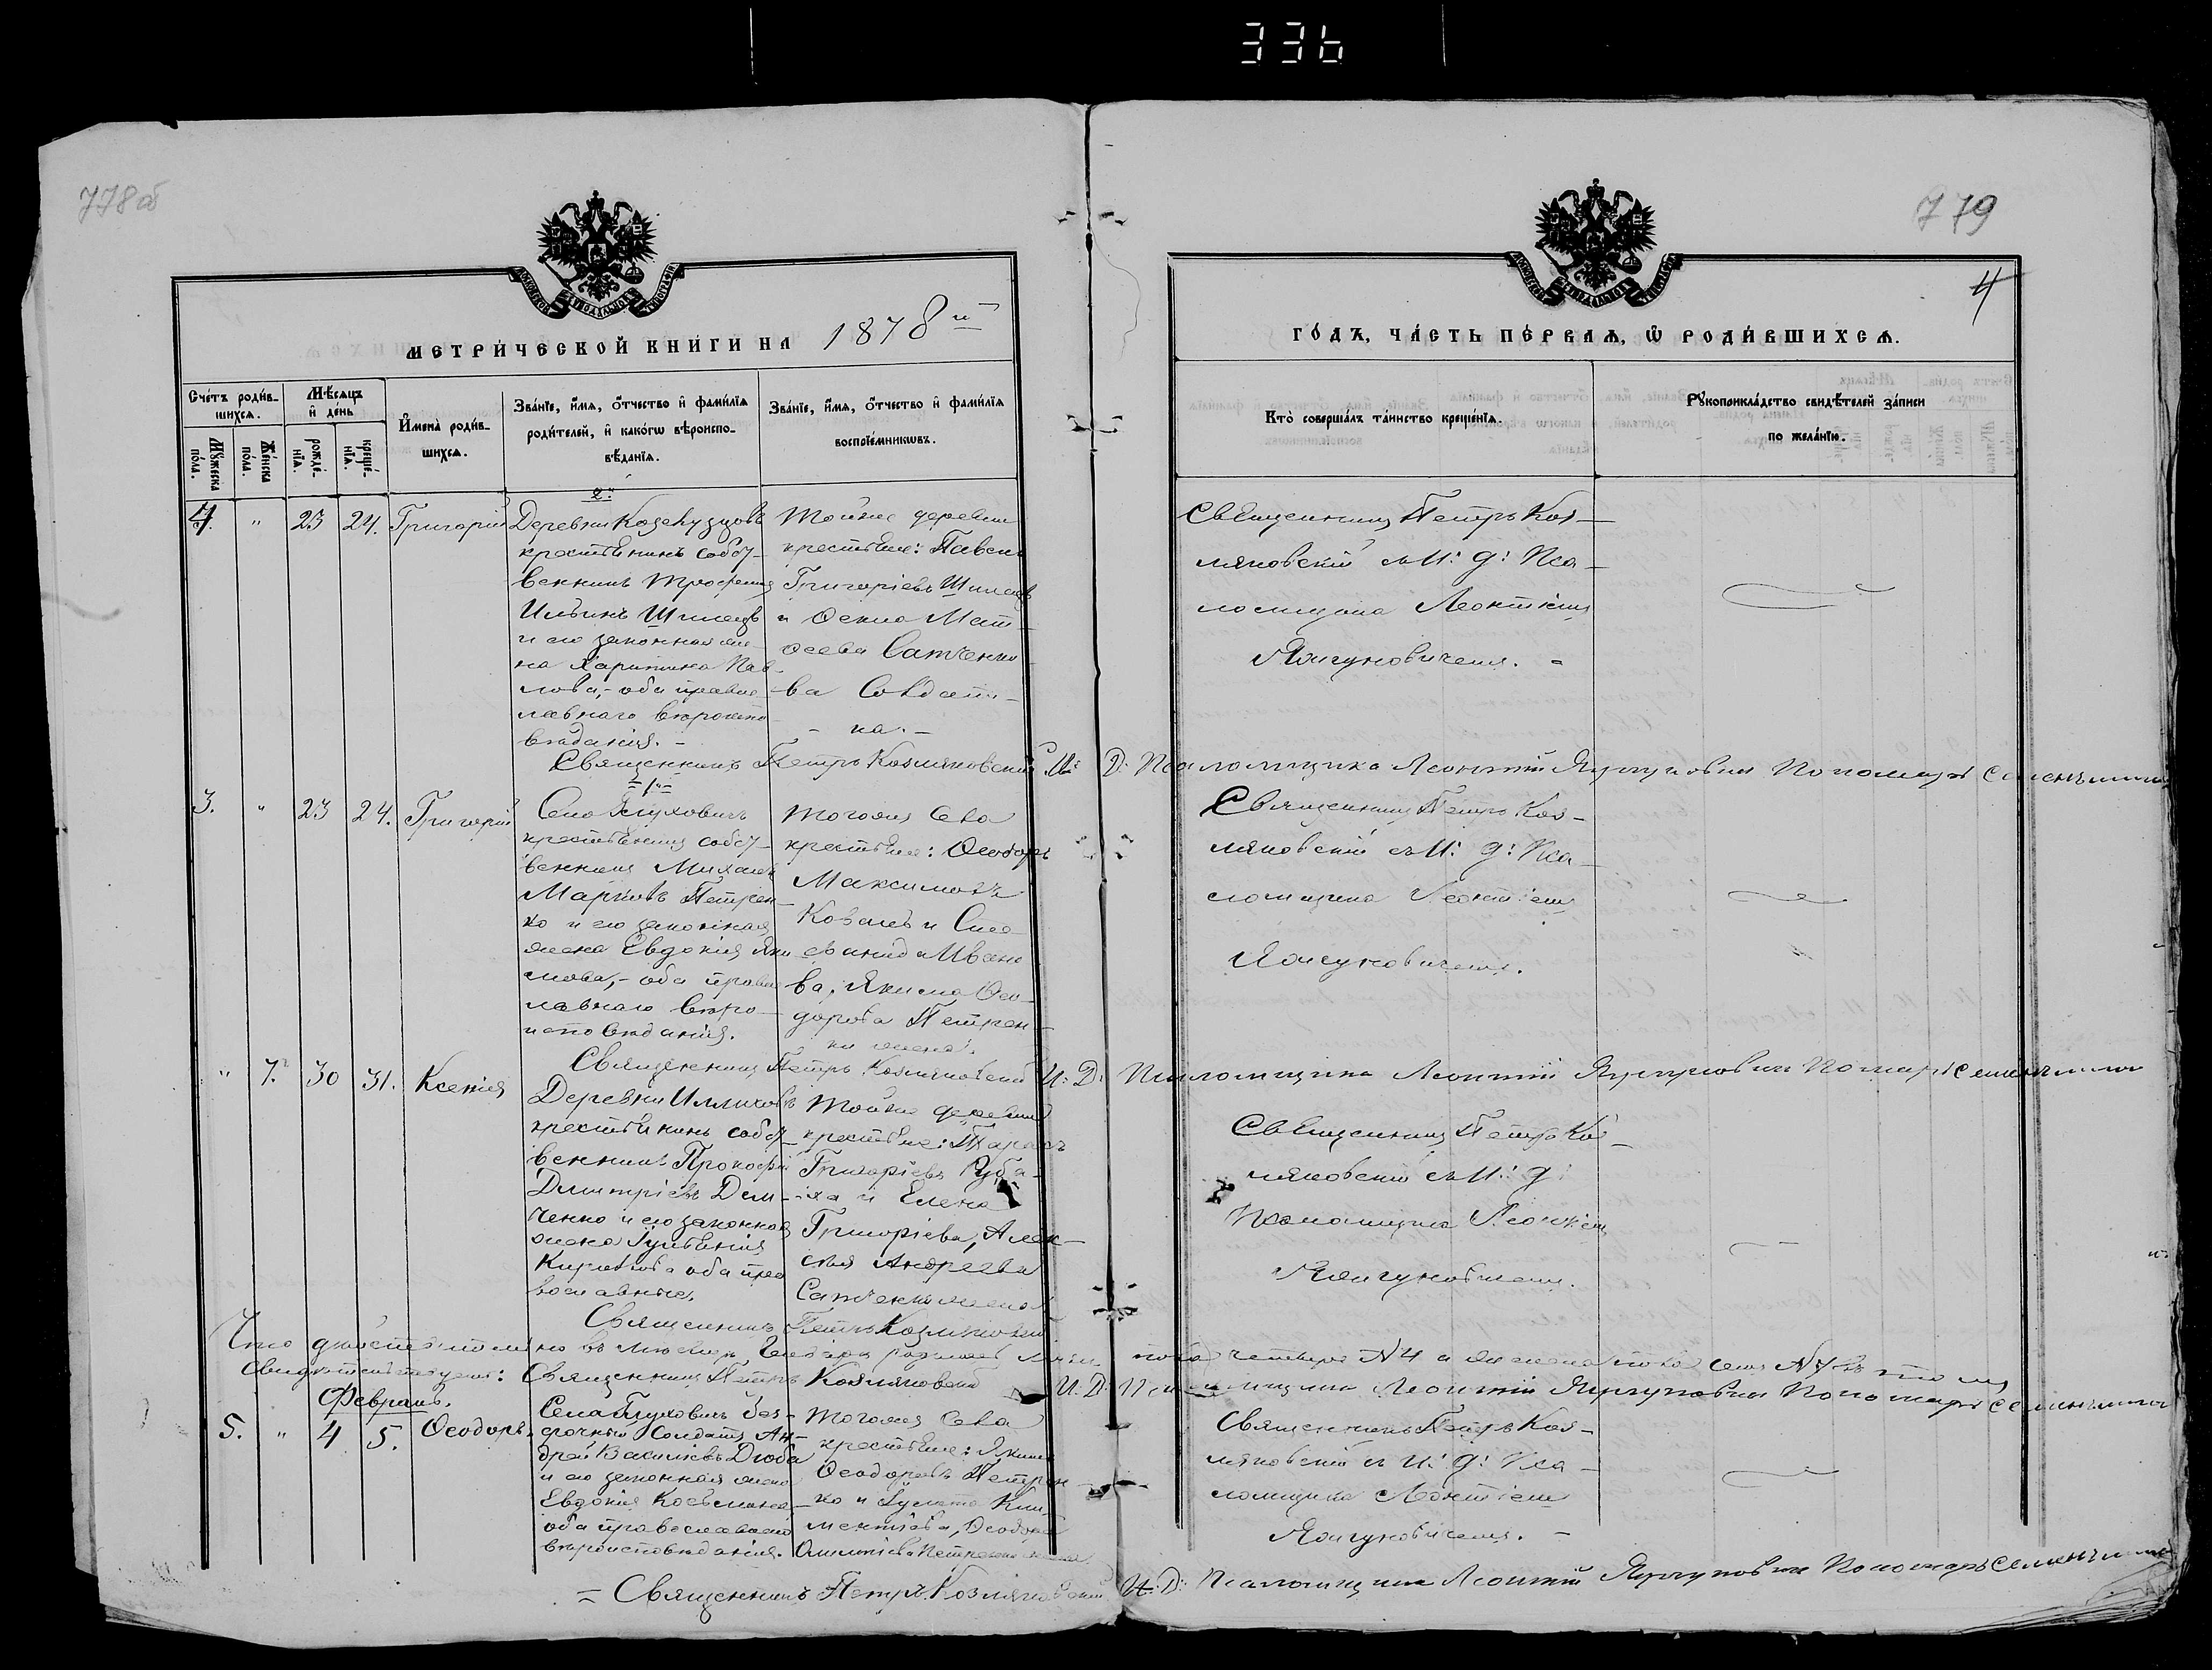 336
778об
779
4
МОСКОВСКОЙ СѴНОДАЛЬНОЙ ТИПОГРАФІИ
МОСКОВСКОЙ СѴНОДАЛЬНОЙ ТИПОГРАФІИ
МЕТРИ́ЧЕСКОЙ КНИ́ГИ НА 1878й
ГО́ДЪ, ЧА́СТЬ ПЕ́РВАѦ, Ѿ РОДИ́ВШИХСѦ.
Сче́тъ роди́в-
шихсѧ.
Мꙋ́жеска по́ла.
Же́нска по́ла.
Мѣ́сѧцъ
и҆ де́нь
рожде́-
нїѧ.
креще́-
нїѧ.
И҆мена̀ роди́в-
шихсѧ.
Зва́нїе, и҆́мѧ, ѻ҆́тчество и҆ фами́лїѧ
роди́телей, и҆ како́гѡ вѣроиспо-
вѣ́данїѧ.
Зва́нїе, и҆́мѧ, ѻ҆́тчество и҆ фами́лїѧ
воспрїе́мникѡвъ.
Кто̀ соверша́лъ та́инство креще́нїѧ.
Рꙋкоприкла́дство свидѣ́телей за́писи
по жела́нїю.
2.
4. " 23 24. Григорій
Деревни
крестьянинъ собст-
венникъ Трофимъ
Ильинъ Шилецъ
и его законная же-
на Харитина Пав-
лова,- оба правос-
лавнаго вѣроиспо-
вѣданія. -
Тойже деревни
крестьяне: Павелъ
Григоріевъ Шилецъ
и Ѳекла Мат-
ѳеева Сатченко-
ва Солдат-
- ка. -
Священникъ Петръ Коз-
мяновскій съ И: д: Пса-
ломщика Леонтіемъ
Ярчуновичемъ. -
Священникъ Петръ Козмяновскій И: Д: Псаломщика Леонтій Ярчуновичъ Пономарь
=1=
3. " 23 24. Григорій
Села Глуховичъ
крестьянинъ собст-
венникъ Михаилъ
Марковъ Петрен-
ко и его законная
жена Евдокія Яки-
мова,- оба правос-
лавнаго вѣро-
исповѣданія.
Тогожъ Села
крестьяне: Ѳеодоръ
Максимовъ
Коваль и Сте-
фанида Ивано-
ва, Якима Ѳео-
дорова Петрен-
ки жена.
Священникъ Петръ Коз-
мяновскій съ И: д: Пса-
ломщика Леонтіемъ
Ярчуновичемъ.
Священникъ Петръ Козмяновскій И: Д: Псаломщика Леонтій Ярчуновичъ Пономарь
" 7. 30 31. Ксенія
Деревни
крестьянинъ собст-
венникъ Прокофій
Димитріевъ Дем-
ченко и его законная
жена Гульянія
Кирилова оба пра-
вославные.
Тойже деревни
крестьяне: Тарасъ
Григоріевъ
и Елена
Григоріева, Алек-
сѣя Андреева
Сатченки жена
Священникъ Петръ Коз-
мяновскій съ И: д:
Псаломщика Леонтіемъ
Ярчуновичемъ.
Священникъ Петръ Козмяновскій
Что дѣйствительно въ мѣсяцѣ Генварѣ родилось четыре №4 и женска пола семь №7 въ томъ
свидѣтельствуемъ: Священникъ Петръ Козмяновскій И: Д: Псаломщика Леонтій Ярчуновичъ Пономарь
Февраль.
5. " 4 5. Ѳеодоръ.
Села Глуховичъ без-
срочный Солдатъ Ан-
дрей Васильевъ Дзюба
и его законная жена
Евдокія Косьмина,-
оба православнаго
вѣроисповѣданія.
Тогожъ Села
крестьяне: Якимъ
Ѳеодоровъ Петрен-
ко и Кли-
ментіева, Ѳеодора
Петренка жена
Священникъ Петръ Коз-
мяновскій съ И: д: Пса-
ломщика Леонтіемъ
Ярчуновичемъ. -
= Священникъ Петръ Козмяновскій И: Д: Псаломщика Леонтій Ярчуновичъ Пономарь